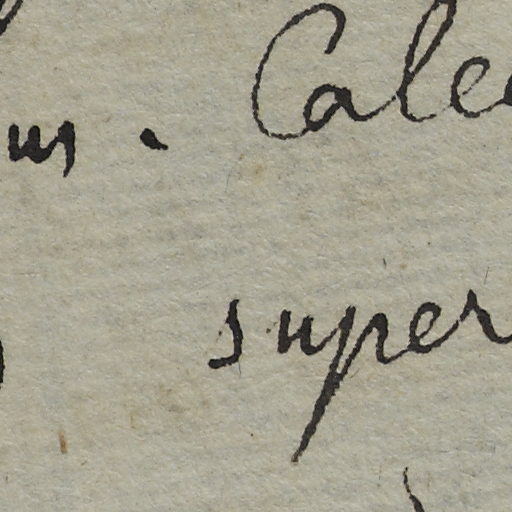 us . Cale
super